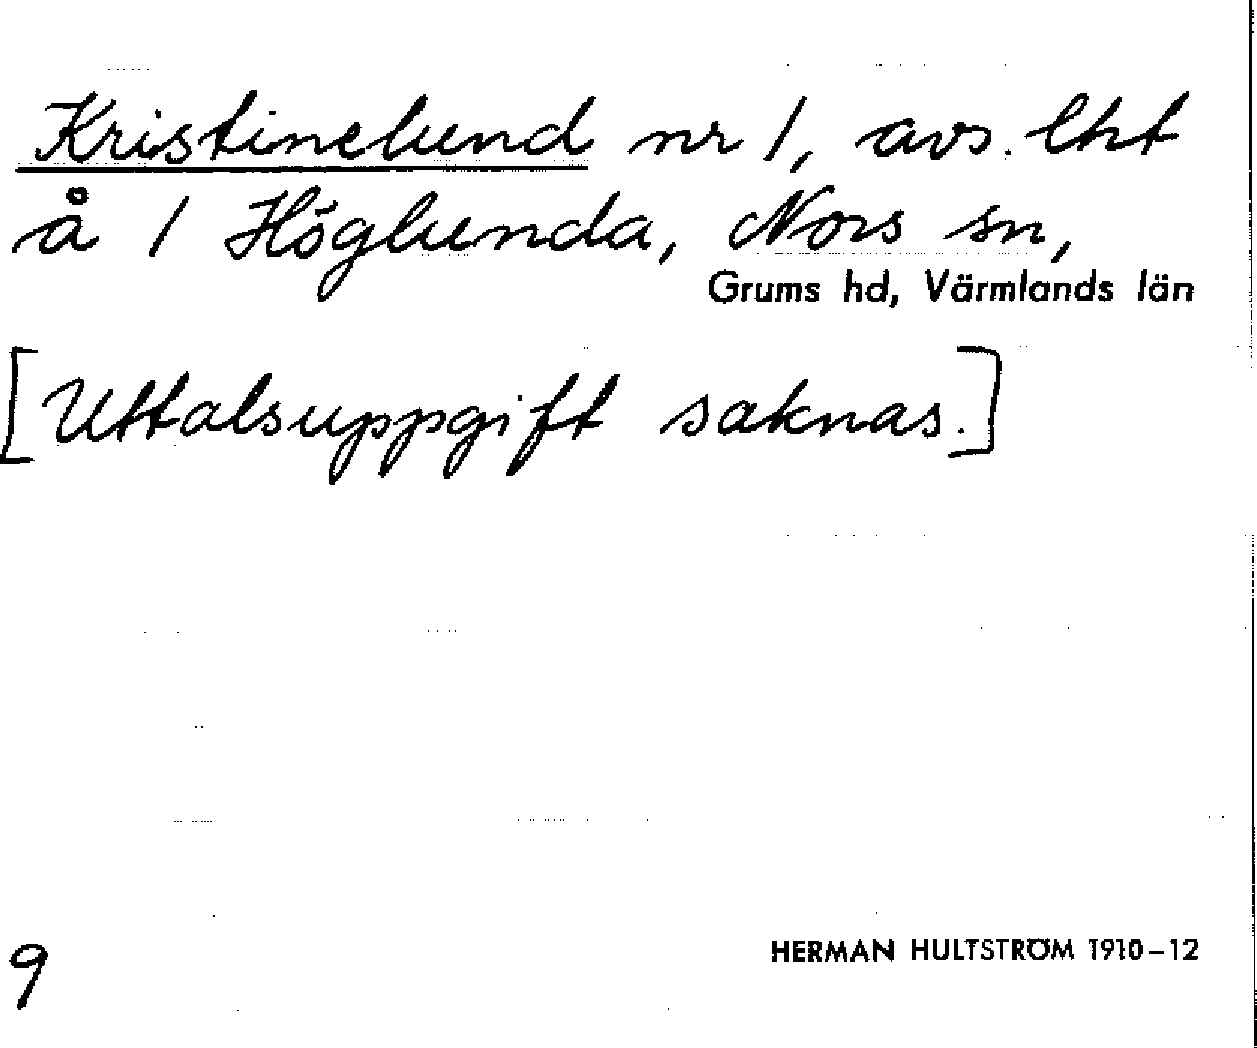 Kristinelund nr 1, avs. lht
å 1 Höglunda, Nors sn,
Grums hd, Värmlands län
[Uttalsuppgift saknas.]
9
HERMAN HULTSTRÖM 1910–12